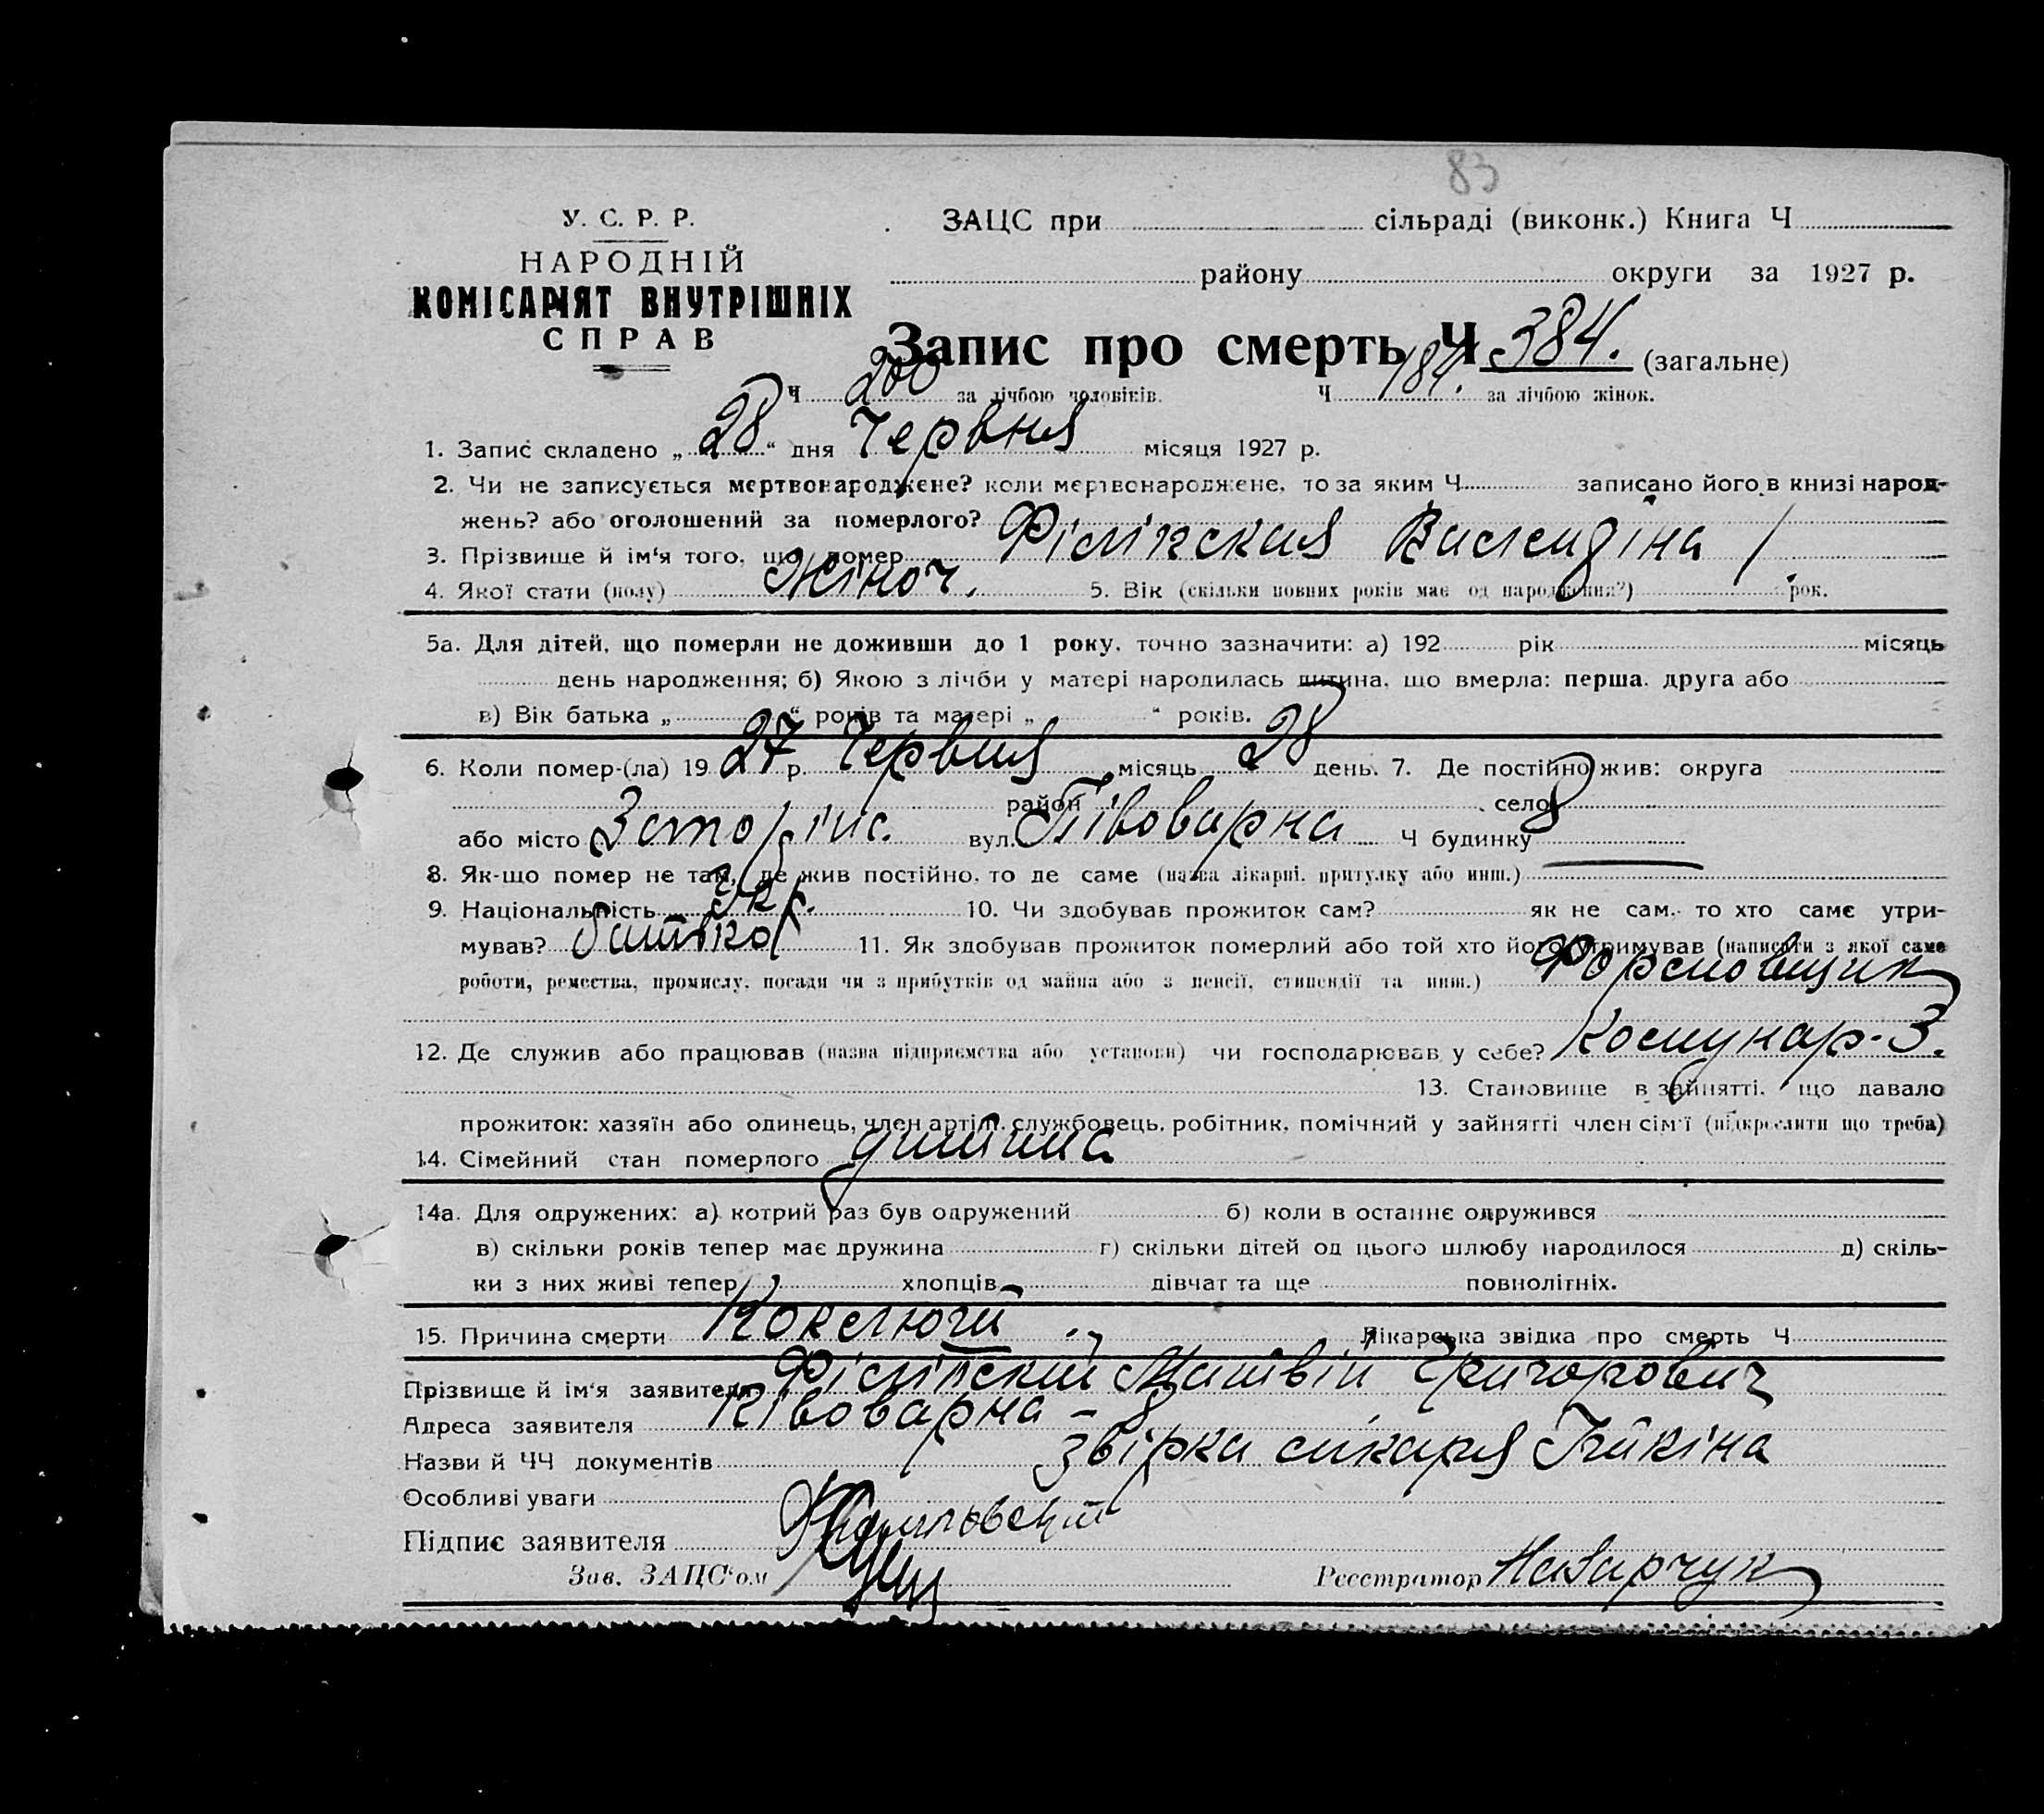 83
У. С. Р. Р.
НАРОДНІЙ
КОМІСАРІЯТ ВНУТРІШНІХ
СПРАВ
ЗАЦС при сільраді (виконк.) Книга Ч
району округи за 1927 р.
Запис про смерть Ч 384. (загальне)
Ч 200 за лічбою чоловіків. Ч 184. за лічбою жінок.
1. Запис складено „28“ дня Червня місяця 1927 р.
2. Чи не записується мертвонароджене? коли мертвонароджене, то за яким Ч записано його в книзі народ-
жень? або оголошений за померлого?
3. Прізвище й ім‘я того, що помер Філіпская Валендіна
4. Якої стати (полу) жіноч. 5. Вік (скільки повних років має од народження?) 1 рок.
5а. Для дітей, що померли не доживши до 1 року, точно зазначити: а) 192 рік місяць
день народження; б) Якою з лічби у матері народилась дитина, що вмерла: перша, друга або
в) Вік батька „ “ років та матері „ “ років.
6. Коли помер-(ла) 1927 р. Червня місяць 28 день. 7. Де постійно жив: округа
район село
або місто вул. Півоварна Ч будинку 8
8. Як-що помер не там, де жив постійно, то де саме (назва лікарні, притулку або инш.) —
9. Національність Укр. 10. Чи здобував прожиток сам? як не сам, то хто саме утри-
мував? батько 11. Як здобував прожиток померлий або той хто його утримував (написати з якої саме
роботи, ремества, промислу, посади чи з прибутків од майна або з пенсії, стипендії та инш.) Формовщик
12. Де служив або працював (назва підприємства або установи) чи господарював у себе? Комунар-З.
13. Становище в зайнятті, що давало
прожиток: хазяїн або одинець, член артілі, службовець, робітник, помічний у зайнятті член сім‘ї (підкреслити що треба)
14. Сімейний стан померлого дитина
14а. Для одружених: а) котрий раз був одружений б) коли в останнє одружився
в) скільки років тепер має дружина г) скільки дітей од цього шлюбу народилося д) скіль-
ки з них живі тепер хлопців дівчат та ще повнолітніх.
15. Причина смерти Коклюш Лікарська звідка про смерть Ч
Прізвище й ім‘я заявителя Філіпский Матвій Григорович
Адреса заявителя Півоварна - 8
Назви й ЧЧ документів звірка лікаря
Особливі уваги
Підпис заявителя
Зав. ЗАЦС‘ом Реєстратор Назарчук